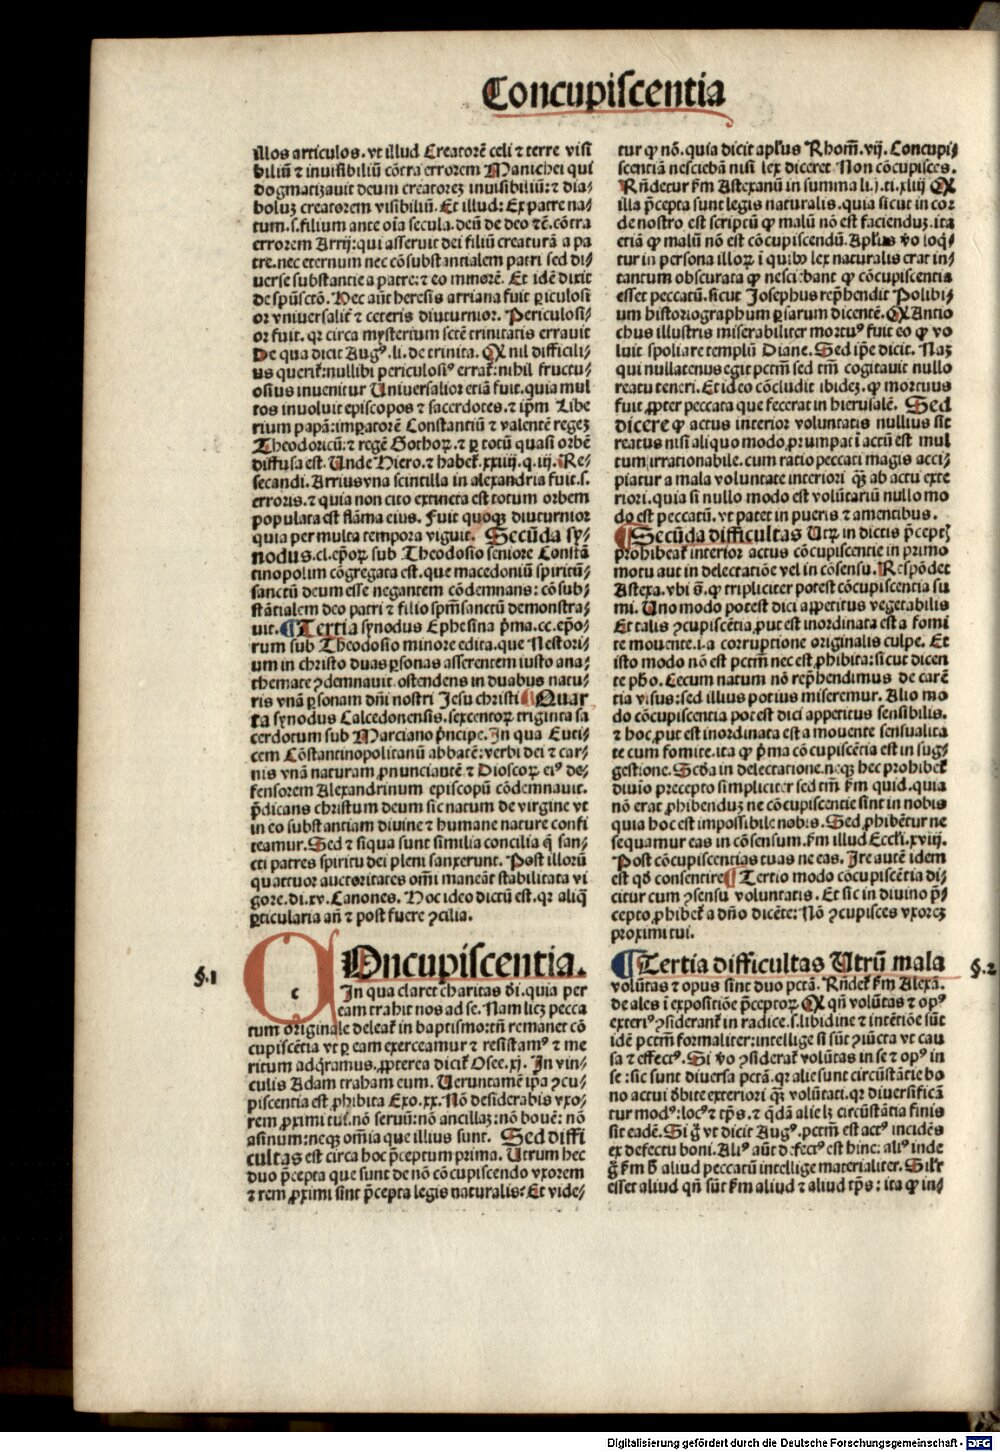 Concupiscentia
illos articulos. vt illud Creatorē celi ⁊ terre visi
biliū ⁊ inuisibiliū cōtra errorem Manichei qui
dogmatizauit deum creatorez inuisibiliū: ⁊ dia⸗
boluz creatorem visibiliū. Et illud: Ex patre na⸗
tum. s. filium ante oīa secula. deū de deo ⁊c̄. cōtra
errorem Arrij: qui asseruit dei filiū creaturā a pa
tre. nec eternum nec cōsubstantialem patri sed di⸗
uerse substantie a patre: ⁊ eo minorē. Et idē dixit
de spūsctō. Hec aūt heresis arriana fuit ꝑiculosi
or vniuersaliē ⁊ ceteris diuturnior. Periculosi⸗
or fuit. qꝛ circa mysterium sctē trinitatis errauit
De qua dicit Augꝰ. li. de trinita. Q̄ nil difficili⸗
us querit̄: nullibi periculosiꝰ errat̄: nihil fructu⸗
osius inuenitur Uniuersalior etiā fuit. quia mul
tos inuoluit episcopos ⁊ sacerdotes. ⁊ ip̄m Libe
rium papā: imꝑatorē Constantiū ⁊ valentē regez
Theodoricū: ⁊ regē Gothoꝝ. ⁊ ꝑ totū quasi orbē
diffusa est. Unde Hiero. ⁊ habet̄. xxiiij. q. iij. Re⸗
secandi. Arrius vna scintilla in alexandria fuit. s.
erroris. ⁊ quia non cito extincta est totum orbem
populata est flāma eius. Fuit quoqꝫ diuturnior
quia per multa tempora viguit. Secūda sy⸗
nodus. cl. ep̄oꝝ sub Theodosio seniore Constā
tinopolim cōgregata est. que macedoniū spiritū⸗
sanctū deum esse negantem cōdemnans: cōsub⸗
stātialem deo patri ⁊ filio sp̄m sanctū demonstra⸗
uit. ¶ Tertia synodus Ephesina p̄ma. cc. ep̄o⸗
rum sub Theodosio minore edita. que Nestori⸗
um in christo duas ꝑsonas asserentem iusto ana⸗
themate ꝯdemnauit. ostendens in duabus natu⸗
ris vnā ꝑsonam dn̄i nostri Jesu christi ¶ Quar
ta synodus Calcedonensis. sexcentoꝝ triginta sa
cerdotum sub Marciano p̄ncipe. In qua Euti⸗
cem Cōstantinopolitanū abbatē: verbi dei ⁊ car⸗
nis vnā naturam ꝓnunciantē ⁊ Dioscoꝝ eiꝰ de⸗
fensorem Alexandrinum episcopū cōdemnauit.
p̄dicans christum deum sic natum de virgine vt
in eo substantiam diuine ⁊ humane nature confi
teamur. Sed ⁊ siqua sunt similia concilia q̄ san⸗
cti patres spiritu dei pleni sanxerunt. Post illorū
quattuor auctoritates om̄i maneāt stabilitata vi
gore. di. xv. Canones. Hoc ideo dictū est. qꝛ aliq̄
ꝑticularia an̄ ⁊ post fuere ꝯcilia.
§.1
COncupiscentia.
c
In qua claret charitas d̄i. quia per
eam trahit nos ad se. Nam licꝫ pecca
tum originale deleat̄ in baptismo: tn̄ remanet cō
cupiscētia vt ꝑ eam exerceamur ⁊ resistamꝰ ⁊ me
ritum adq̄ramus. ꝓpterea dicit̄ Osee. xj. In vin⸗
culis Adam traham eum. Ueruntamē ip̄a ꝯcu⸗
piscentia est ꝓhibita Exo. xx. Nō desiderabis vxo⸗
rem ꝓximi tui. nō seruū: nō ancillaꝫ: nō bouē: nō
asinum: neqꝫ om̄ia que illius sunt. Sed diffi
cultas est circa hoc p̄ceptum prima. Utrum hec
duo p̄cepta que sunt de nō cōcupiscendo vxorem
⁊ rem ꝓximi sint p̄cepta legis naturalis. Et vide⸗
tur ꝙ nō. quia dicit apl̄us Rhom̄. vij. Concupi⸗
scentiā nesciebā nisi lex diceret Non cōcupisces.
Rn̄detur s̄m Astexanū in summa li. j. ti. xliij Q̄
illa p̄cepta sunt legis naturalis. quia sicut in cor
de nostro est scriptū ꝙ malū nō est facienduz. ita
etiā ꝙ malū nō est cōcupiscendū. Apl̄us v̄o loq̄⸗
tur in persona illoꝝ ī quibꝰ lex naturalis erat in⸗
tantum obscurata ꝙ nesciebant ꝙ cōcupiscentia
esset peccatū. sicut Josephus rep̄hendit Polibi⸗
um historiographum ꝑsarum dicentē. Q̄ Antio
chus illustris miserabiliter mortuꝰ fuit eo ꝙ vo
luit spoliare templū Diane. Sed ip̄e dicit. Naꝫ
qui nullatenus egit pctm̄ sed tm̄ cogitauit nullo
reatu teneri. Et ideo cōcludit ibidez. ꝙ mortuus
fuit ꝓpter peccata que fecerat in hierusalē. Sed
dicere ꝙ actus interior voluntatis nullius sit
reatus nisi aliquo modo ꝓrumpat ī actū est mul
tum irrationabile. cum ratio peccati magis acci⸗
piatur a mala voluntate interiori qꝫ ab actu exte
riori. quia si nullo modo est volūtariū nullo mo
do est peccatū. vt patet in pueris ⁊ amentibus.
¶ Secūda difficultas Utꝝ in dictis p̄ceptꝭ
prohibeat̄ interior actus cōcupiscentie in primo
motu aut in delectatiōe vel in cōsensu. Respōdet
Astexa. vbi s̄. ꝙ tripliciter potest cōcupiscentia su
mi. Uno modo potest dici appetitus vegetabilis
Et talis ꝯcupiscētia ꝓut est inordinata est a fomi
te mouente. i. a corruptione originalis culpe. Et
isto modo nō est pctm̄ nec est ꝓhibita: sicut dicen
te ph̄o. Cecum natum nō rep̄hendimus de carē
tia visus: sed illius potius miseremur. Alio mo
do cōcupiscentia potest dici appetitus sensibilis.
⁊ hoc ꝓut est inordinata est a mouente sensualita
te cum fomite. ita ꝙ p̄ma cōcupiscētia est in sug⸗
gestione. Scd̄a in delectatione. neqꝫ hec prohibet̄
diuio precepto simpliciter sed tm̄ s̄m quid. quia
nō erat ꝓhibenduꝫ ne cōcupiscentie sint in nobis
quia hoc est impossibile nobis. Sed ꝓhibētur ne
sequamur eas in cōsensum. s̄m illud Eccl̄i. xviij.
Post cōcupiscentias tuas ne eas. Ire autē idem
est qd̄ consentire ¶ Tertio modo cōcupiscētia di⸗
citur cum ꝯsensu voluntatis. Et sic in diuino p̄⸗
cepto ꝓhibet̄ a dn̄o dicēte: Nō ꝯcupisces vxoreꝫ
proximi tui.
¶ Tertia difficultas Utrū mala
§.2
volūtas ⁊ opus sint duo pctā. Rn̄det̄ s̄m Alexā.
de ales ī expositiōe p̄ceptoꝝ. Q̄ qn̄ volūtas ⁊ opꝰ
exteriꝰ ꝯsiderant̄ in radice. s. libidine ⁊ intētiōe sūt
idē pctm̄ formaliter: intellige si sūt ꝯiūcta vt cau
sa ⁊ effectꝰ. Si v̄o ꝯsiderat̄ volūtas in se ⁊ opꝰ in
se: sic sunt diuersa pctā. qꝛ alie sunt circūstātie bo
no actui d̄bite exteriori qꝫ volūtati. qꝛ diuersificā
tur modꝰ: locꝰ ⁊ tp̄s. ⁊ q̄dā alie lꝫ circūstātia finis
sit eadē. Si g̊ vt dicit Augꝰ. pctm̄ est actꝰ incidēs
ex defectu boni. Aliꝰ aūt defectꝰ est hinc: aliꝰ inde
g̊ s̄m ꝟ aliud peccatū intellige materialiter. Silr̄
esset aliud qn̄ sūt s̄m aliud ⁊ aliud tp̄s: ita ꝙ in⸗
Digitalisierung gefördert durch die Deutsche Forschungsgemeinschaft - DFG